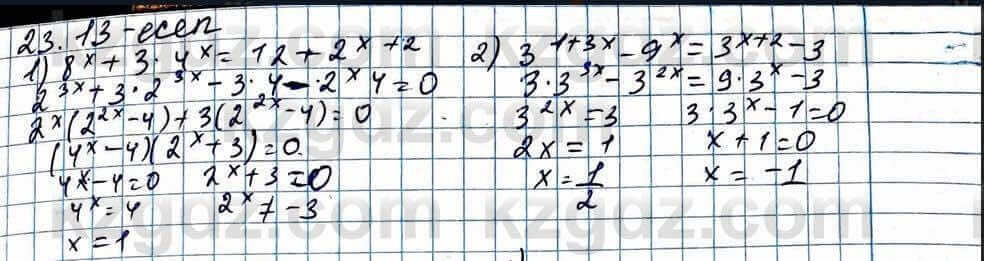 23.13-есеп
1) 8^x + 3·4^x = 12 + 2^(x+2)
2^(3x) + 3·2^(3x) - 3·4 - 2^x 4 = 0
2^x(2^(2x) - 4) + 3(2^(2x) - 4) = 0
(4^x - 4)(2^x + 3) = 0
4^x - 4 = 0 2^x + 3 = 0
4^x = 4 2^x ≠ -3
x = 1
2) 3^(1+3x) - 9^x = 3^(x+2) - 3
3·3^(3x) - 3^(2x) = 9·3^x - 3
3^(2x) = 3 3·3^x - 1 = 0
2x = 1 x + 1 = 0
x = 1/2 x = -1
kzgdz.com